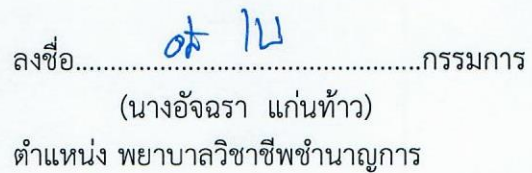 ลงชื่อ................................................กรรมการ
(นางอัจฉรา แก่นท้าว)
ตำแหน่ง พยาบาลวิชาชีพชำนาญการ